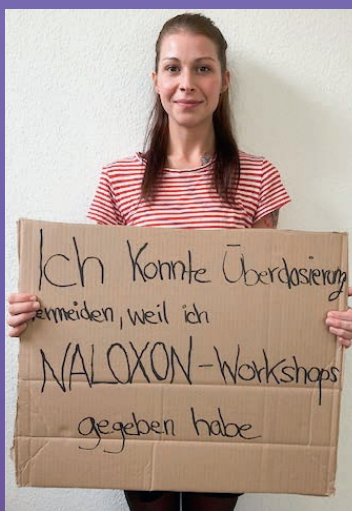 Ich Konnte Überdosierung
vermeiden, weil ich
NALOXON-Workshops
gegeben habe